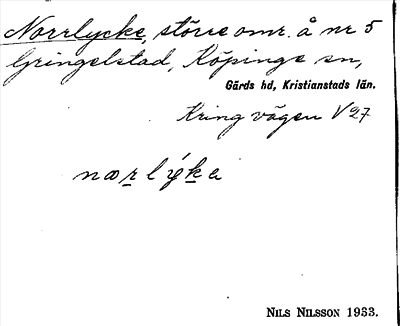 Norrlycke, större omr. å nr 5
Gringelstad, Köpinge sn,
Gärds hd, Kristianstads län.
Kring vägen V 27
nærlýka
NILS NILSSON 1933.